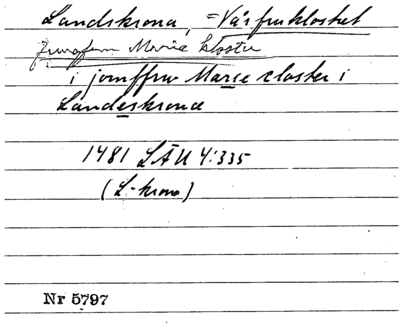 Landskrona, = Vårfruklostret
Jungfru Maria kloster
i jomffrw Marie closter i
Landeskrone
1481 LÄU 4:335
(L-krona)
Nr 5797